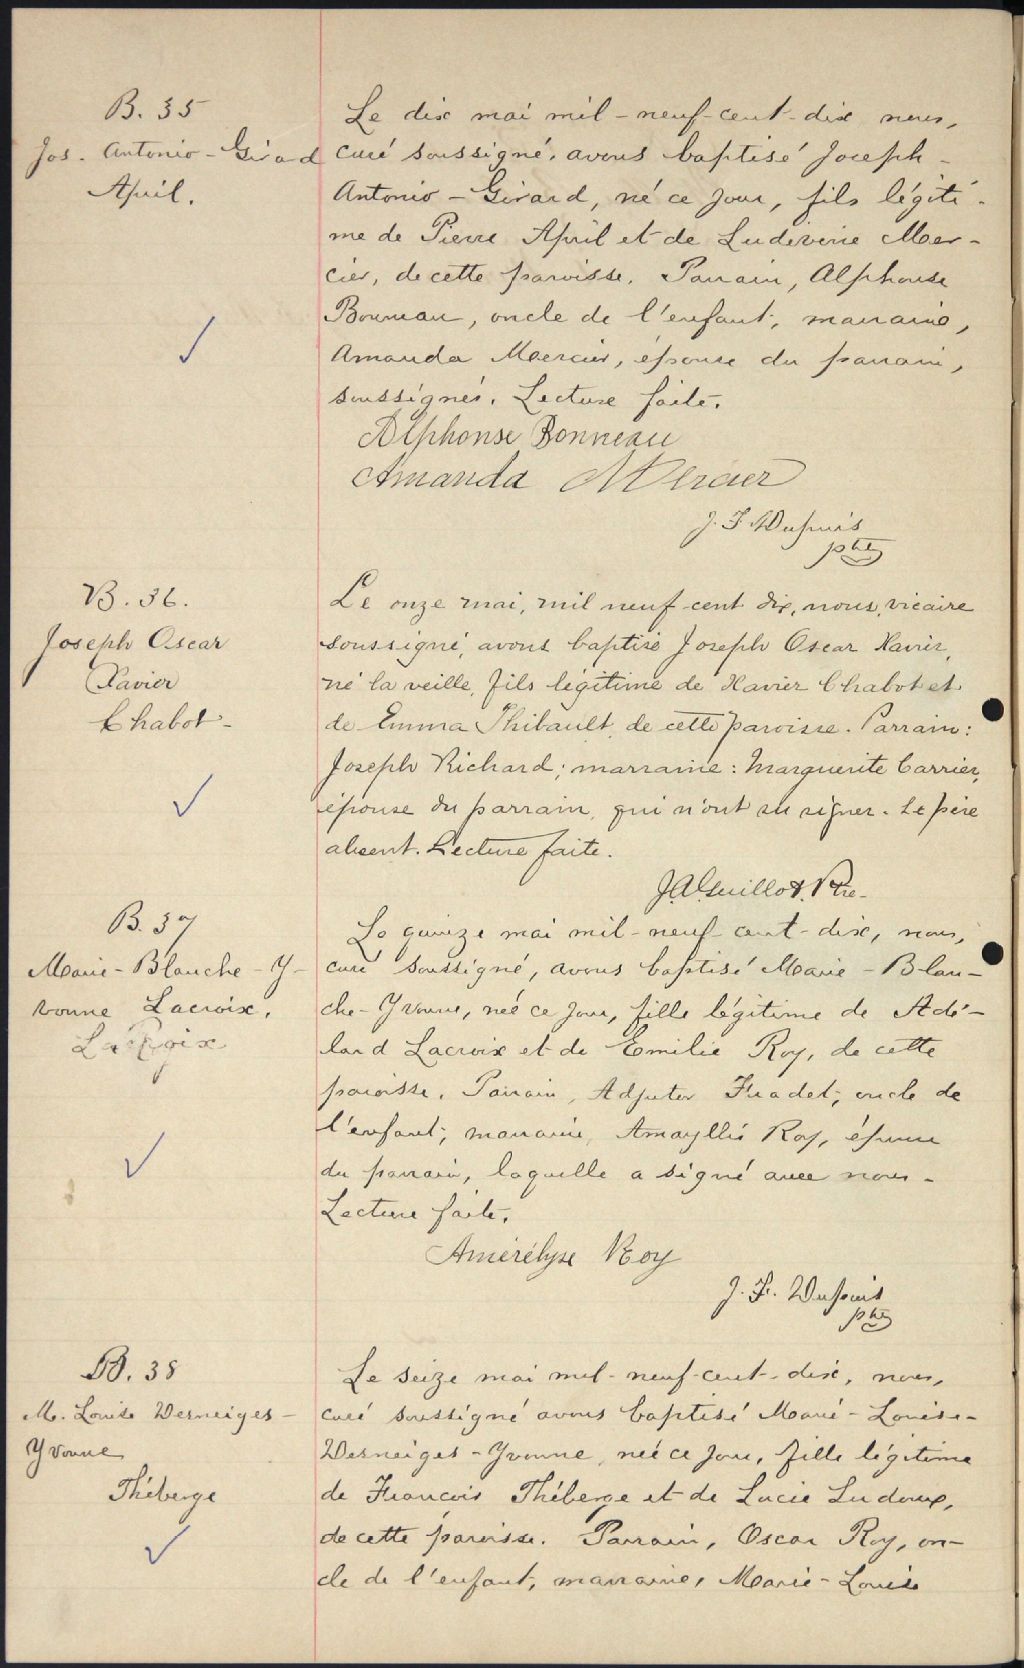 B. 35
Jos. Antonio - Girard
April.
Le dix mai mil-neuf-cent-dix nous,
curé soussigné, avons baptisé Joseph-
Antonio - Girard, né ce jour, fils légiti-
me de Pierre April et de Ludivine Mer-
cier, de cette paroisse. Parrain, Alphonse
Bonneau, oncle de l'enfant, marraine,
Amanda Mercier, épouse du parrain,
soussignés. Lecture faite.
Alphonse Bonneau
Amanda Mercier
J. F. Dupuis
ptre
B. 36.
Joseph Oscar
Xavier
Chabot-
Le onze mai, mil neuf cent dix, nous, vicaire
soussigné, avons baptisé Joseph Oscar Xavier,
né la veille, fils légitime de Xavier Chabot et
de Emma Thibault, de cette paroisse. Parrain:
Joseph Richard; marraine: Marguerite Carrier,
épouse du parrain, qui n'ont su signer. Le père
absent. Lecture faite.
J.A. Guillot. Ptre-
B. 37
Marie-Blanche-Y-
vonne Lacroix.
LaCroix
Le quinze mai mil-neuf cent-dix, nous,
curé soussigné, avons baptisé Marie-Blan-
che-Yvonne, née ce jour, fille légitime de Adé-
lard Lacroix et de Emilie Roy, de cette
paroisse. Parrain, Adjutor Fradet, oncle de
l'enfant; marraine, Amayllis Roy, épouse
du parrain, laquelle a signé avec nous.
Lecture faite.
Amérélyse Roy
J. F. Dupuis
ptre
B. 38
M. Louise Desneiges-
Yvonne
Théberge
Le seize mai mil-neuf-cent-dix, nous,
curé soussigné avons baptisé Marie-Louise-
Desneiges-Yvonne, née ce jour, fille légitime
de François Théberge et de Lucie Ludoux,
de cette paroisse. Parrain, Oscar Roy, on-
cle de l'enfant, marraine, Marie-Louise